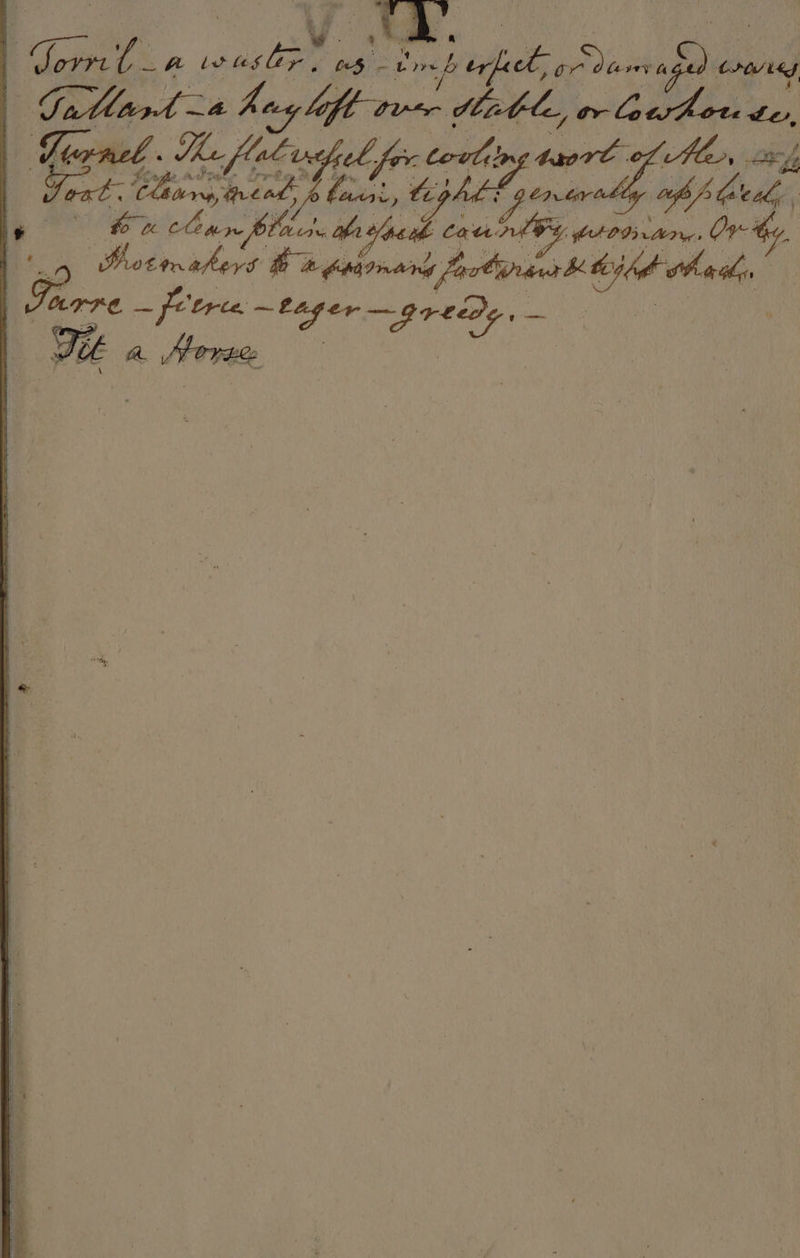 T.
Torril - a waster. as - imperfect, or Damaged wares
Tallant - a hay loft over stable, or Cowhouse,
Turnel. The flat vessel for cooling wort of Ale,
Toat. Clean, neat, plain, tight: generally applied,
to a clean plain dressed country woman. Or by
Shoemakers to a womans foot
Tarre - fierce - eager - greedy. -
Tit a Horse